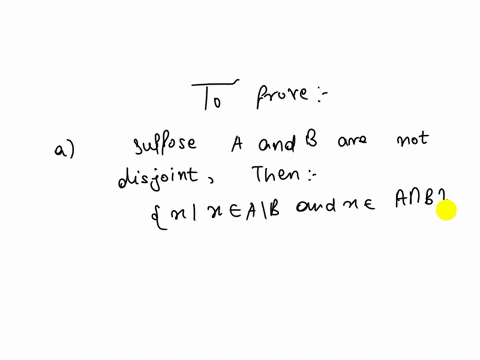 To prove:-
a) suppose A and B are not
disjoint, Then:-
{x | x ∈ A\B and x ∈ A∩B}